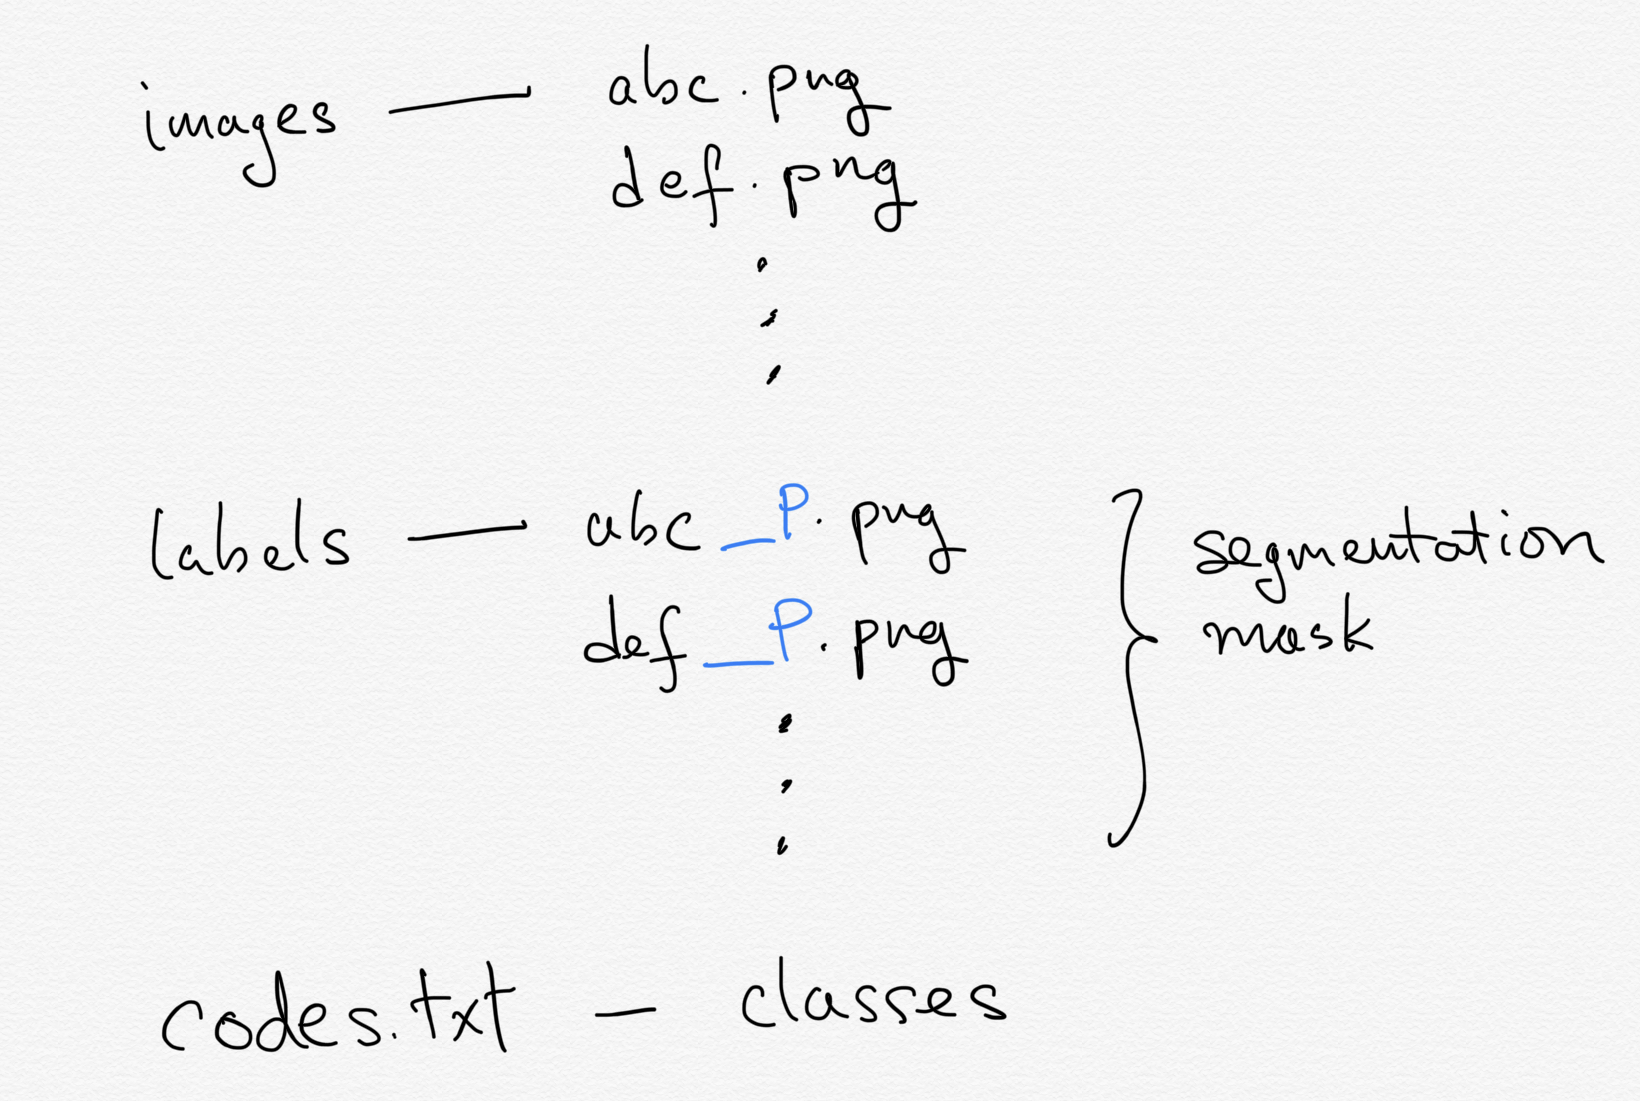 images — abc.png
def.png
.
.
.
labels — abc_P.png
def_P.png
.
.
.
segmentation
mask
codes.txt — classes